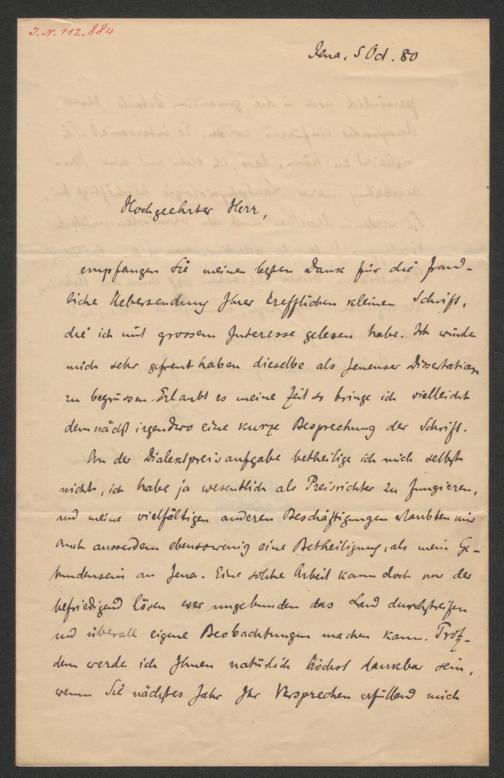 J. N. 112.884
Jena, 5 Oct. 80
Hochgeehrter Herr,
empfangen Sie meinen besten Dank für die freund-
liche Uebersendung Ihrer trefflichen kleinen Schrift,
die ich mit grossem Interesse gelesen habe. Ich würde
mich sehr gefreut haben dieselbe als Jenenser Dissertation
zu begrüssen. Erlaubt es meine Zeit so bringe ich vielleicht
demnächst irgendwo eine kurze Besprechung der Schrift.
An der Dialectpreisaufgabe betheilige ich mich selbst
nicht, ich habe ja wesentlich als Preisrichter zu fungieren,
und meine vielfältigen anderen Beschäftigungen erlaubten mir
auch ausserdem ebensowenig eine Betheiligung, als mein Ge-
bundensein an Jena. Eine solche Arbeit kann doch nur der
befriedigend lösen wer ungebunden das Land durchstreifen
und überall eigene Beobachtungen machen kann. Trotz-
dem werde ich Ihnen natürlich höchst dankbar sein,
wenn Sie nächstes Jahr Ihr Versprechen erfüllend mich